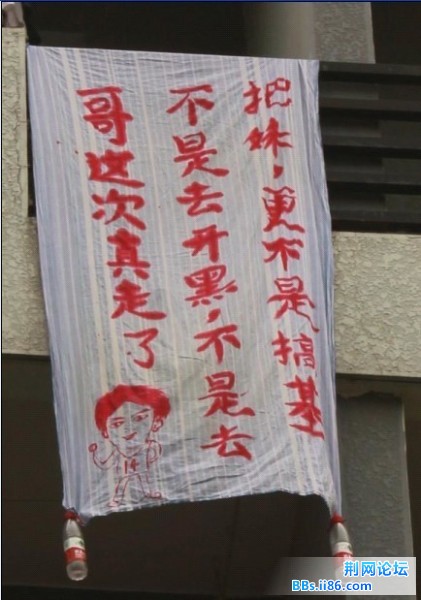 哥这次真走了
不是去开黑,不是去
把妹,更不是搞基
14
荆网论坛
BBs.ii86.com